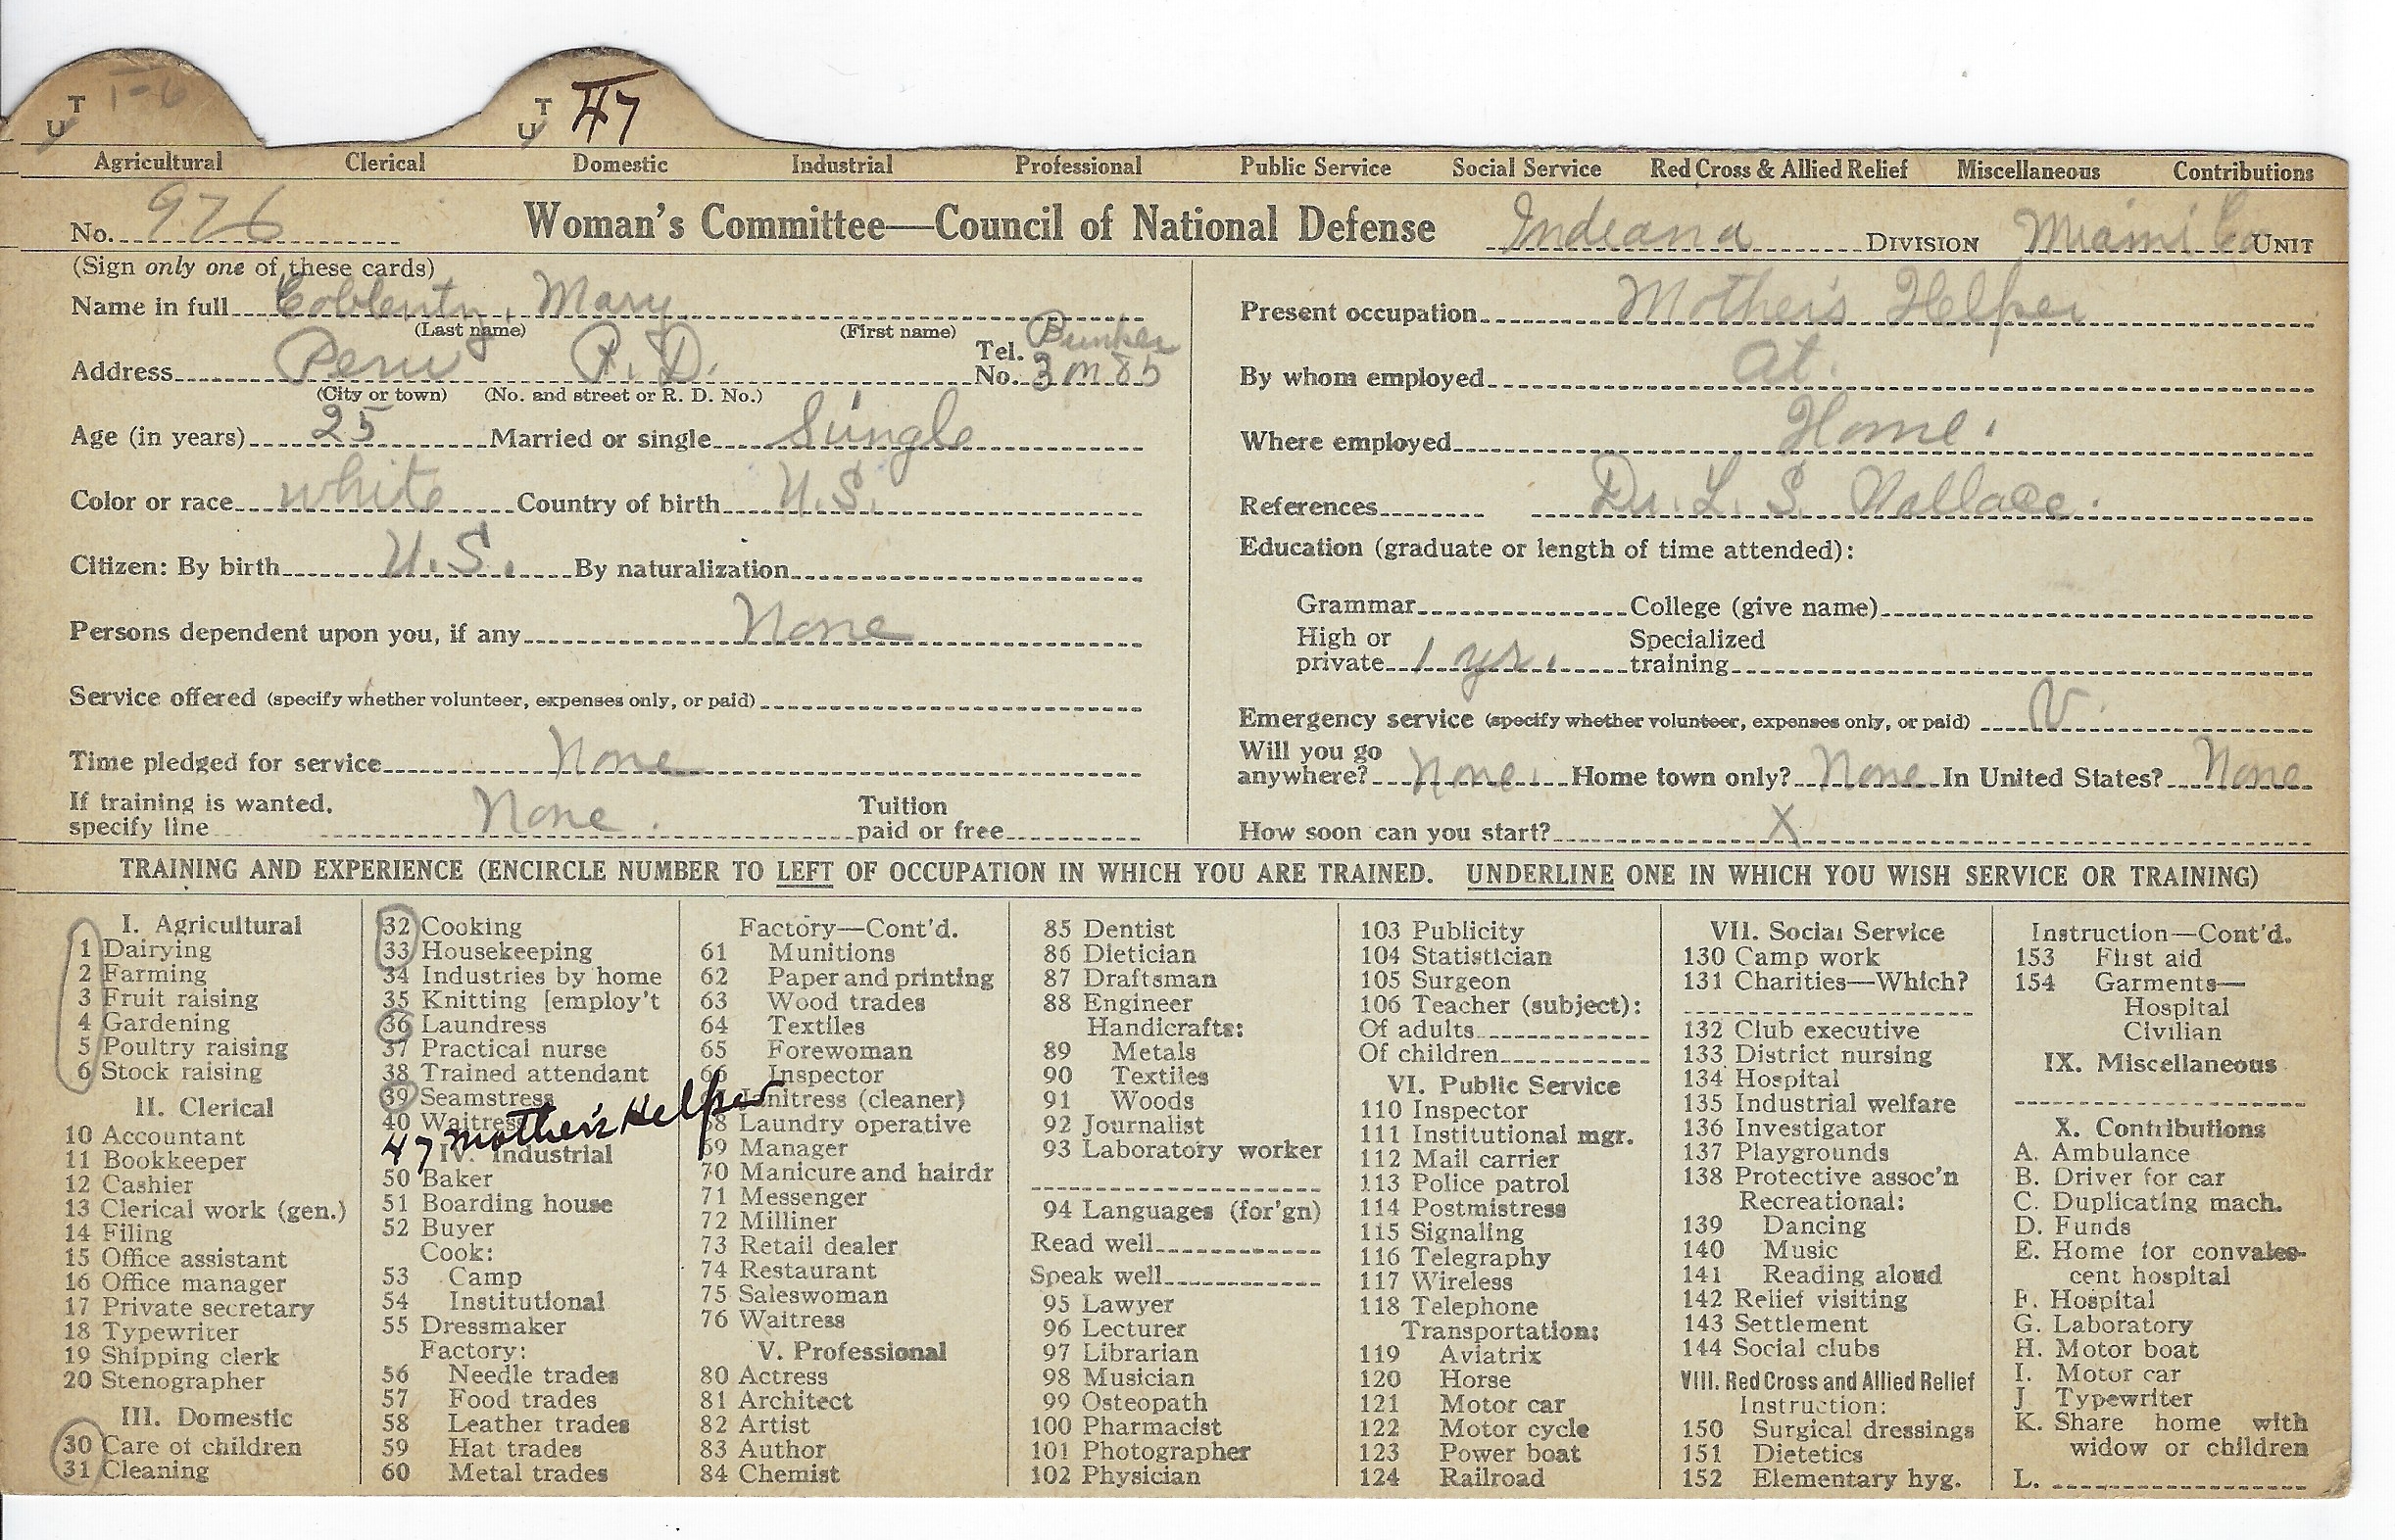 T 1-6 T 47
U U
Agricultural Clerical Domestic Industrial Professional Public Service Social Service Red Cross & Allied Relief Miscellaneous Contributions
No. 976 Woman's Committee—Council of National Defense Indeana DIVISION Miami Co UNIT
(Sign only one of these cards)
Name in full Coblentz, Mary
(Last name) (First name)
Address Peru R. D. Tel. No. Bunker 3 m 85
(City or town) (No. and street or R. D. No.)
Age (in years) 25 Married or single Single
Color or race white Country of birth U.S.
Citizen: By birth U.S. By naturalization
Persons dependent upon you, if any None
Service offered (specify whether volunteer, expenses only, or paid)
Time pledged for service None
If training is wanted, specify line None. Tuition paid or free
Present occupation Mother's Helper
By whom employed At.
Where employed Home.
References Dr. L. S. Wallace.
Education (graduate or length of time attended):
Grammar College (give name)
High or private 1 yr. Specialized training
Emergency service (specify whether volunteer, expenses only, or paid) V
Will you go anywhere? None. Home town only? None In United States? None
How soon can you start? X
TRAINING AND EXPERIENCE (ENCIRCLE NUMBER TO LEFT OF OCCUPATION IN WHICH YOU ARE TRAINED. UNDERLINE ONE IN WHICH YOU WISH SERVICE OR TRAINING)
I. Agricultural
1 Dairying
2 Farming
3 Fruit raising
4 Gardening
5 Poultry raising
6 Stock raising
II. Clerical
10 Accountant
11 Bookkeeper
12 Cashier
13 Clerical work (gen.)
14 Filing
15 Office assistant
16 Office manager
17 Private secretary
18 Typewriter
19 Shipping clerk
20 Stenographer
III. Domestic
30 Care of children
31 Cleaning
32 Cooking
33 Housekeeping
34 Industries by home
35 Knitting [employ't
36 Laundress
37 Practical nurse
38 Trained attendant
39 Seamstress
40 Waitress
47 Mother's Helper
IV. Industrial
50 Baker
51 Boarding house
52 Buyer
Cook:
53 Camp
54 Institutional
55 Dressmaker
Factory:
56 Needle trades
57 Food trades
58 Leather trades
59 Hat trades
60 Metal trades
Factory—Cont'd.
61 Munitions
62 Paper and printing
63 Wood trades
64 Textiles
65 Forewoman
66 Inspector
Janitress (cleaner)
68 Laundry operative
69 Manager
70 Manicure and hairdr
71 Messenger
72 Milliner
73 Retail dealer
74 Restaurant
75 Saleswoman
76 Waitress
V. Professional
80 Actress
81 Architect
82 Artist
83 Author
84 Chemist
85 Dentist
86 Dietician
87 Draftsman
88 Engineer
Handicrafts:
89 Metals
90 Textiles
91 Woods
92 Journalist
93 Laboratory worker
94 Languages (for'gn)
Read well
Speak well
95 Lawyer
96 Lecturer
97 Librarian
98 Musician
99 Osteopath
100 Pharmacist
101 Photographer
102 Physician
103 Publicity
104 Statistician
105 Surgeon
106 Teacher (subject):
Of adults
Of children
VI. Public Service
110 Inspector
111 Institutional mgr.
112 Mail carrier
113 Police patrol
114 Postmistress
115 Signaling
116 Telegraphy
117 Wireless
118 Telephone
Transportation:
119 Aviatrix
120 Horse
121 Motor car
122 Motor cycle
123 Power boat
124 Railroad
VII. Social Service
130 Camp work
131 Charities—Which?
132 Club executive
133 District nursing
134 Hospital
135 Industrial welfare
136 Investigator
137 Playgrounds
138 Protective assoc'n
Recreational:
139 Dancing
140 Music
141 Reading aloud
142 Relief visiting
143 Settlement
144 Social clubs
VIII. Red Cross and Allied Relief
Instruction:
150 Surgical dressings
151 Dietetics
152 Elementary hyg.
Instruction—Cont'd.
153 First aid
154 Garments—
Hospital
Civilian
IX. Miscellaneous
X. Contributions
A. Ambulance
B. Driver for car
C. Duplicating mach.
D. Funds
E. Home for convales-
cent hospital
F. Hospital
G. Laboratory
H. Motor boat
I. Motor car
J Typewriter
K. Share home with
widow or children
L.